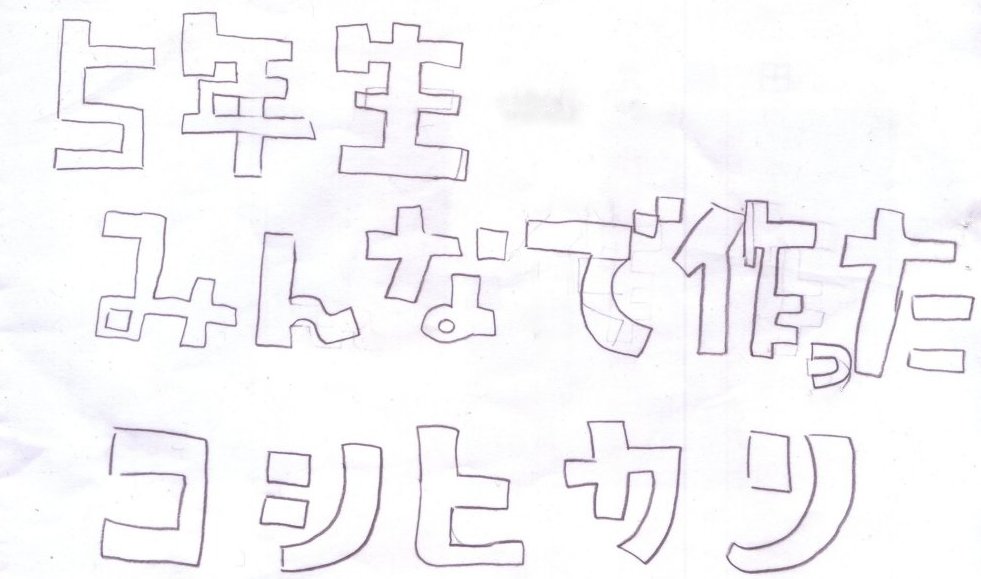 5年生
みんなで作った
コシヒカリ